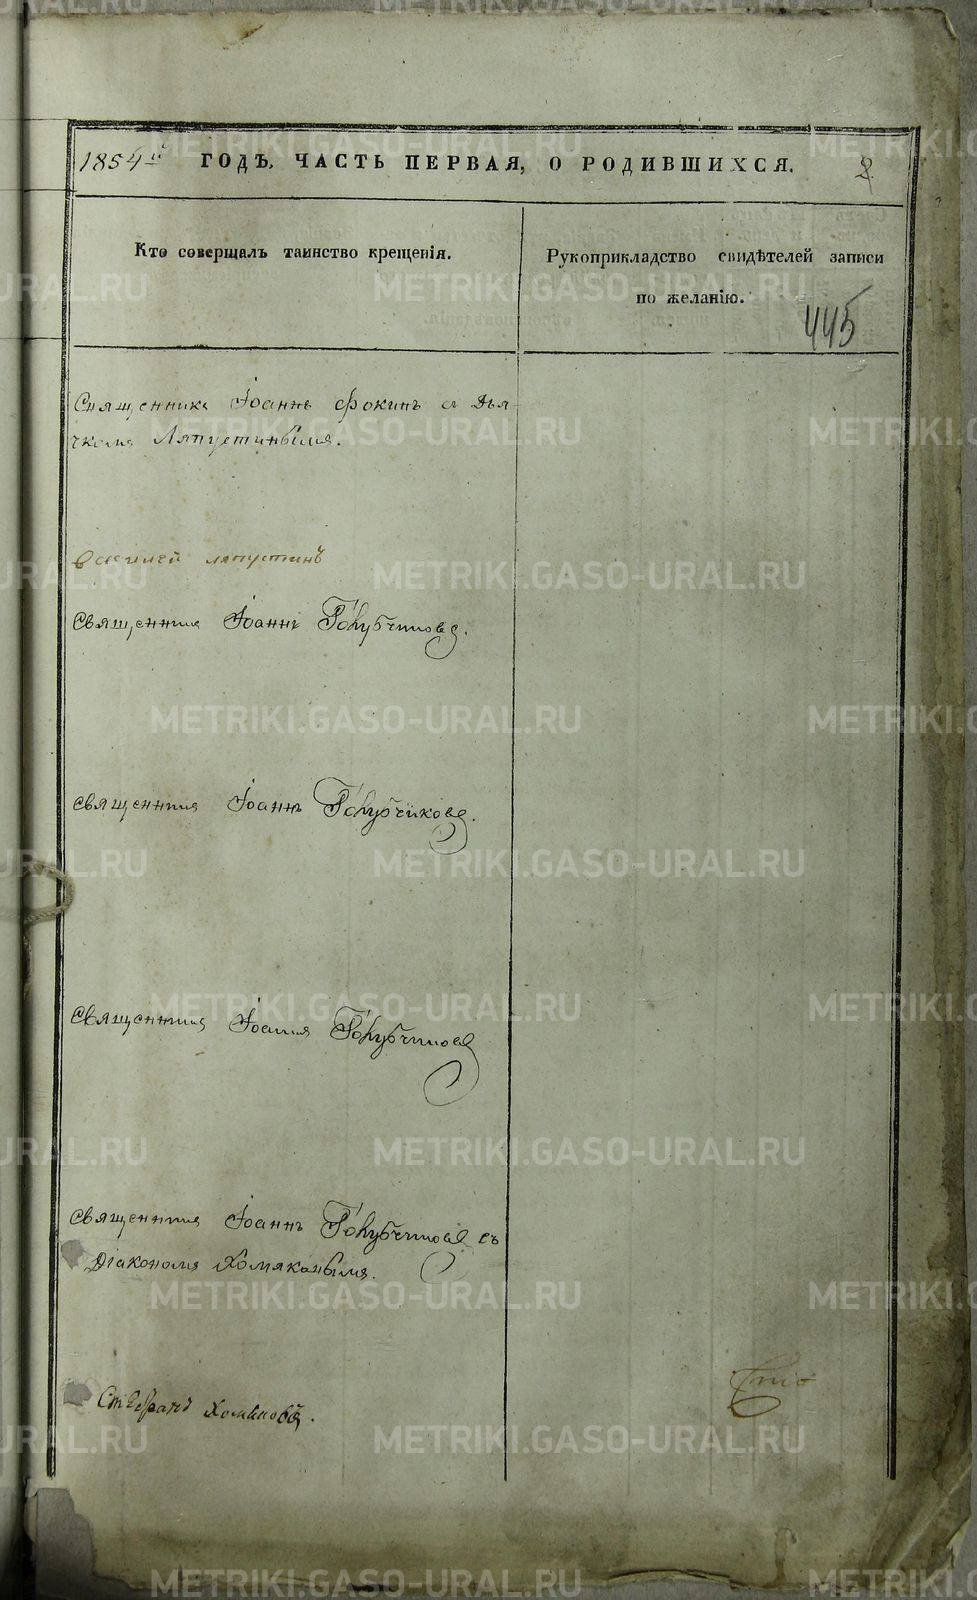 1854й ГОДЪ, ЧАСТЬ ПЕРВАЯ, О РОДИВШИХСЯ. 2
Кто совершалъ таинство крещенія.
Рукоприкладство свидѣтелей записи
по желанію.
445
Священникъ Іоаннъ Фокинъ съ Дья-
чкомъ Ляпустинымъ.
Василей ляпустинъ
Священникъ Іоаннъ Голубчиковъ.
Священникъ Іоаннъ Голубчиковъ.
Священникъ Іоаннъ Голубчиковъ
Священникъ Іоаннъ Голубчиковъ съ
Діакономъ Хомяковымъ.
Хомяковъ.
METRIKI.GASO-URAL.RU